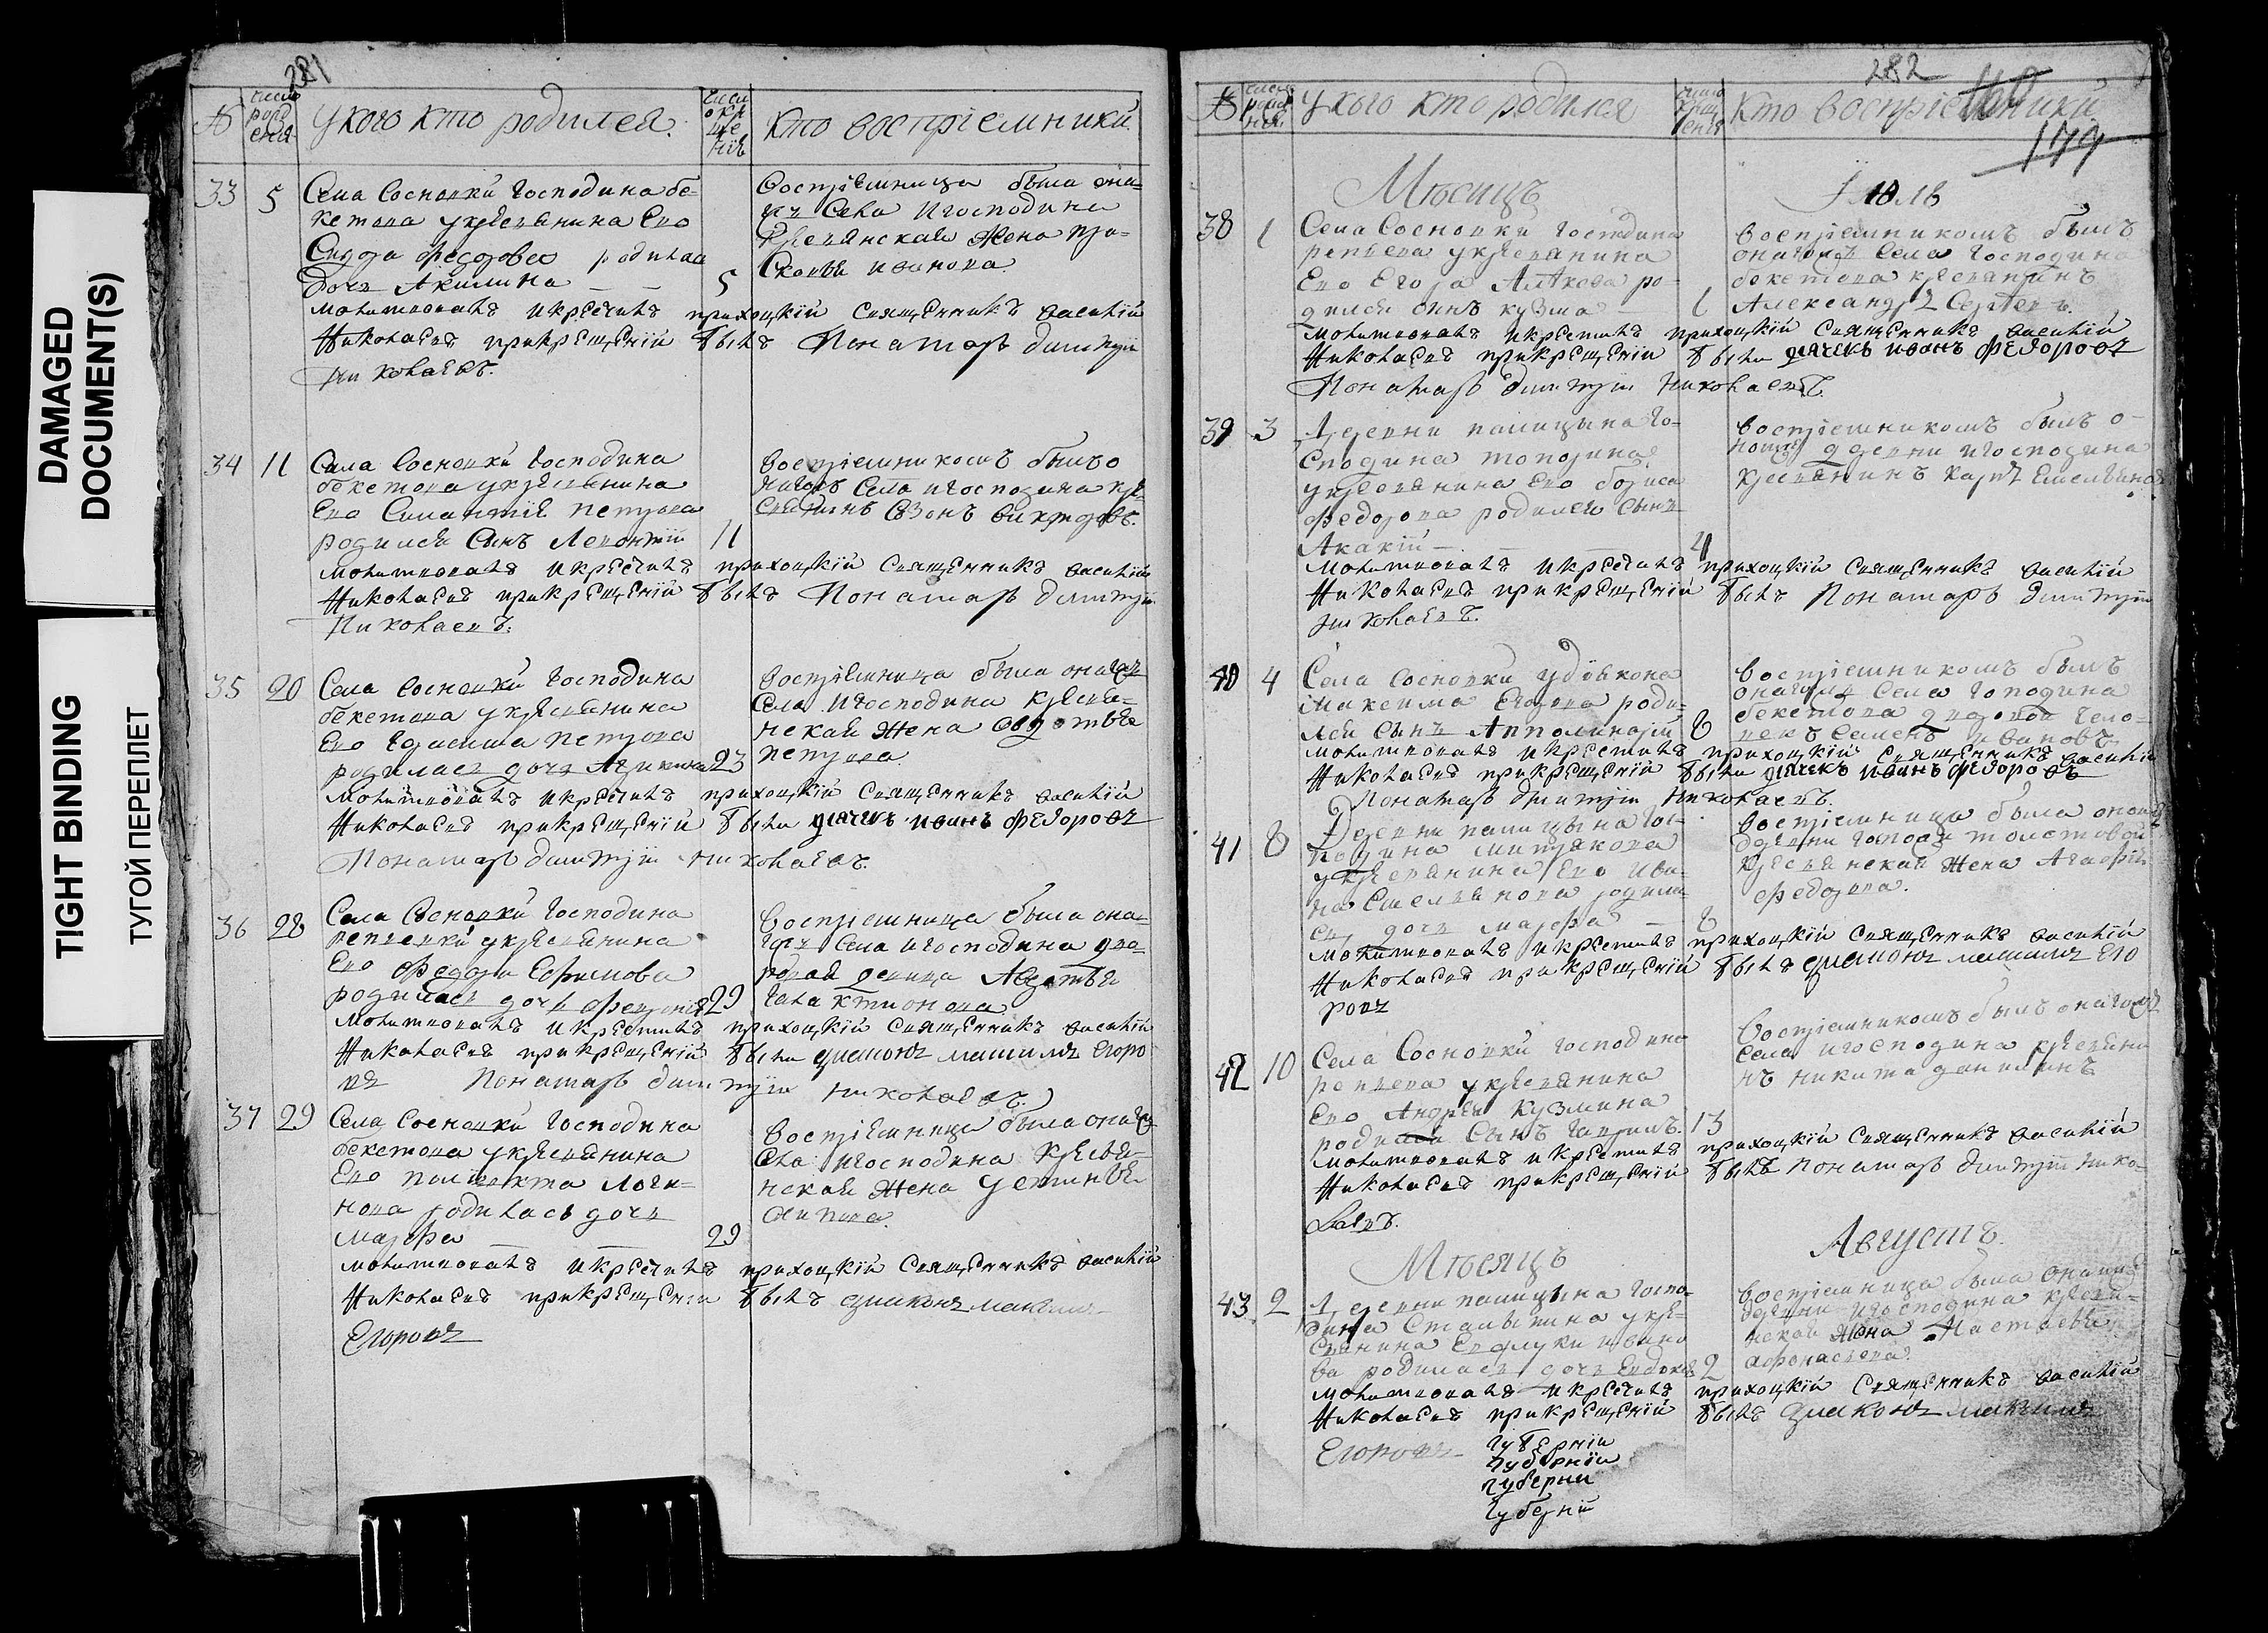 DAMAGED
DOCUMENT(S)
TIGHT BINDING
ТУГОЙ ПЕРЕПЛЕТ
281
№
число рождения
у кого кто родился.
число крщенія
Кто воспріемники.
33
5
Села Сосновки Господина Бе-
кетова укрестьянина Ево
Сидора Федорова родилась
дочь Акилина
5
воспріемница была она-
гож Села игосподина
крестьянская жена Пра-
сковья иванова.
молитвовалъ икрестилъ прихоцкій Священникъ василій
Николаевъ прикрещеній былъ Понамарь димитрій
Николаевъ.
34
11
Села Сосновки Господина
бекетова укрестьянина
Ево Силантія Петрова
родился Сынъ Леонтій
11
воспріемникомъ былъ о
нагожъ Села игосподина кре
стьянинъ Созонъ викторовъ.
молитвовалъ икрестилъ прихоцкій Священникъ василій
Николаевъ прикрещеній былъ Понамарь димитрій
Николаевъ.
35
20
Села Сосновки Господина
бекетова укрестьянина
Ево Герасима петрова
родилась дочь Агрипина
23
воспріемница была онагож
Села игосподина крестья-
нская жена авдотья
петрова.
молитвовалъ икрестилъ прихоцкій Священникъ василій
Николаевъ прикрещеній были дьячекъ иванъ федоровъ
Понамарь димитрій николаевъ.
36
28
Села Сосновки Господина
репьевки укрестьянина
Ево Федора Ефимова
родилась дочь
29
воспріемница была она-
гож Села игосподина дво-
ровая девица Авдотья
Галактионова
молитвовалъ икрестилъ прихоцкій Священникъ василій
Николаевъ прикрещеній были диаконъ максимъ Егоро
въ Понамарь димитрій николаевъ.
37
29
Села Сосновки Господина
бекетова укрестьянина
Ево Логи-
нова родилась дочь
марфа
29
воспріемница была онагож
Села игосподина крестья-
нская жена устинья
молитвовалъ икрестилъ прихоцкій Священникъ василій
Николаевъ прикрещеніи былъ диаконъ максимъ
Егоровъ
282
179
№
число рожденія
у кого кто родился
число крщенія
Кто воспріемники
Мѣсяцъ
Іюль
38
1
Села Сосновки Господина
репьева укрестьянина
Ево Егора Алѣкова ро-
дился сынъ кузма
1
воспріемникомъ былъ
онагожъ Села Господина
бекетова крестьянинъ
Александръ Сергеевъ.
молитвовалъ икрестилъ прихоцкій Священникъ василій
Николаевъ прикрещеній были дьячекъ иванъ федоровъ
Понамарь димитрій николаевъ.
39
3
Деревни палицына Го-
сподина топорина
укрестьянина Ево бориса
федорова родился Сынъ
Акакій
4
воспріемникомъ былъ о-
ной деревни игосподина
крестьянинъ карпъ Емельяновъ
молитвовалъ икрестилъ прихоцкій Священникъ василій
Николаевъ прикрещеній былъ Понамарь димитрій
николаевъ.
40
4
Села Сосновки удіякона
максима Егорова роди-
лся сынъ Апполинарій
8
воспріемникомъ былъ
онагожъ Села Господина
бекетова дворовой чело-
векъ Семенъ ивановъ
молитвовалъ икрестилъ прихоцкій Священникъ василій
Николаевъ прикрещеній были дьячекъ иванъ федоровъ
Понамарь димитрій николаевъ.
41
8
Деревни палицына Гос-
подина митрякова
укрестьянина Ево Ива-
на Емельянова родила-
сь дочь марфа
8
воспріемница была оной
деревни Госпожи толстовой
крестьянская жена Агафія
федорова.
молитвовалъ икрестилъ прихоцкій Священникъ василій
Николаевъ прикрещеній былъ диаконъ максимъ Его
ровъ
42
10
Села Сосновки Господина
репьева укрестьянина
Ево Андрея кузмина
родился Сынъ Гаврилъ.
13
Воспріемникомъ былъ онагожъ
села игосподина крестьяни
нъ никита данилинъ
молитвовалъ икрестилъ прихоцкій Священникъ василій
Николаевъ прикрещеній былъ понамарь димитрій нико-
лаевъ.
Мѣсяцъ
Августъ.
43
2
Деревни палицына Госпо-
дина Столыпина укре-
стьянина Ево луки ивано
ва родилась дочь Евдокія
2
воспріемница была оной
деревни игосподина кресть-
нская жена Настасья
афонасьева.
молитвовалъ икрестилъ прихоцкій Священникъ василій
Николаевъ прикрещеній былъ диаконъ максимъ
Егоровъ
губерніи
губерніи
губерни
губерніи